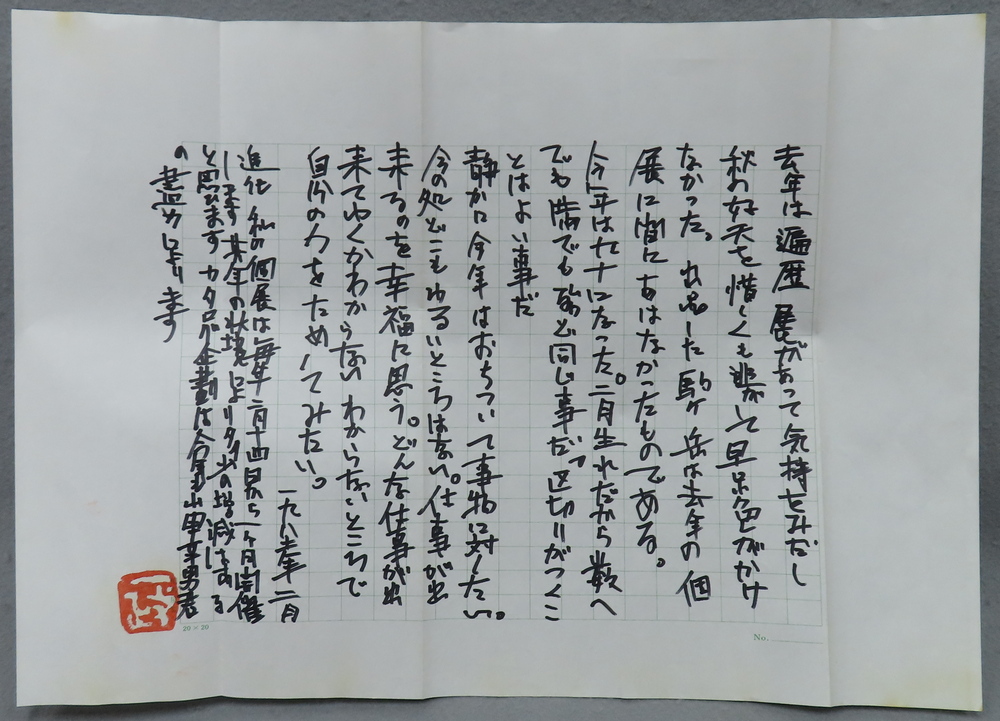 去年は遍歴展があって気持をみだし
秋の好天を惜しくも逃がして早景色がかけ
なかった。出品した駒ヶ岳は去年の個
展に間にあはなかったものである。
今年は九十になった。二月生れだから数へ
でも満でも殆ど同じ事だ。区切りがつくこ
とはよい事だ
静かに今年はおちついて事物に対したい。
今の処どこもわるいところはない。仕事が出
来るのを幸福に思う。どんな仕事が出
来てゆくかわからない わからないところで
自分の力をためしてみたい。
一九八五年二月
進化 私の個展は毎年二月十四日から一ヶ月開催
します 其年の状境によりタイムの増減はある
と思ひます カタログ企劃は今年も山田幸男君
の盡力によります
20×20
No.